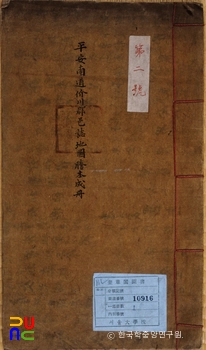 第二號
平安南道价川郡邑誌地圖謄本成冊
10916
서울大學校
© 한국학중앙연구원